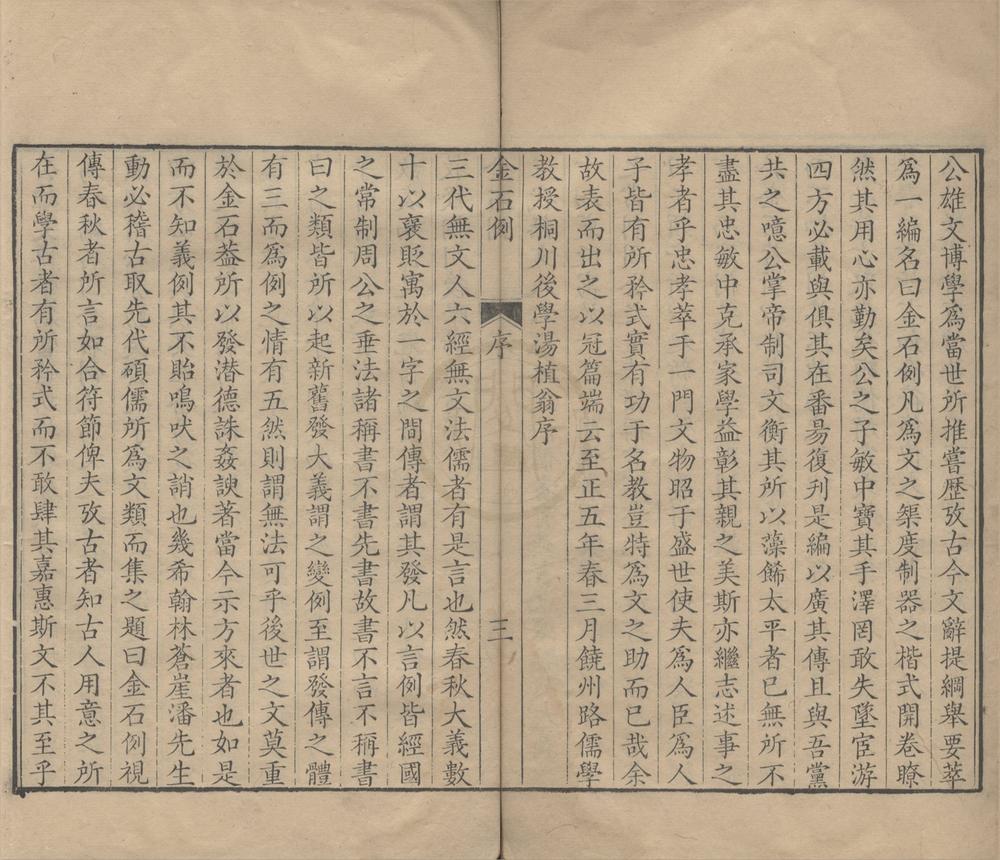 公雄文博學爲當世所推嘗歴攷古今文辭提綱舉要萃
爲一編名曰金石例凡爲文之榘度制器之楷式開卷瞭
然其用心亦勤矣公之子敏中寶其手澤罔敢失墜宦游
四方必載與俱其在番昜復刋是編以廣其傳且與吾黨
共之噫公掌帝制司文衡其所以藻餙太平者已無所不
盡其忠敏中克承家學益彰其親之美斯亦繼志述事之
孝者乎忠孝萃于一門文物昭于盛世使夫爲人臣爲人
子皆有所矜式實有功于名教豈特爲文之助而已哉余
故表而出之以冠篇端云至正五年春三月饒州路儒學
教授桐川後學湯植翁序
金石例 序 三
三代無文人六經無文法儒者有是言也然春秋大義數
十以褒貶寓於一字之間傳者謂其發凡以言例皆經國
之常制周公之垂法諸稱書不書先書故書不言不稱書
曰之類皆所以起新舊發大義謂之變例至謂發傳之體
有三而爲例之情有五然則謂無法可乎後世之文莫重
於金石葢所以發潜德誅姦諛著當今示方來者也如是
而不知義例其不貽鳴吠之誚也幾希翰林蒼崖潘先生
動必稽古取先代碩儒所爲文類而集之題曰金石例視
傳春秋者所言如合符節俾夫攷古者知古人用意之所
在而學古者有所矜式而不敢肆其嘉惠斯文不其至乎